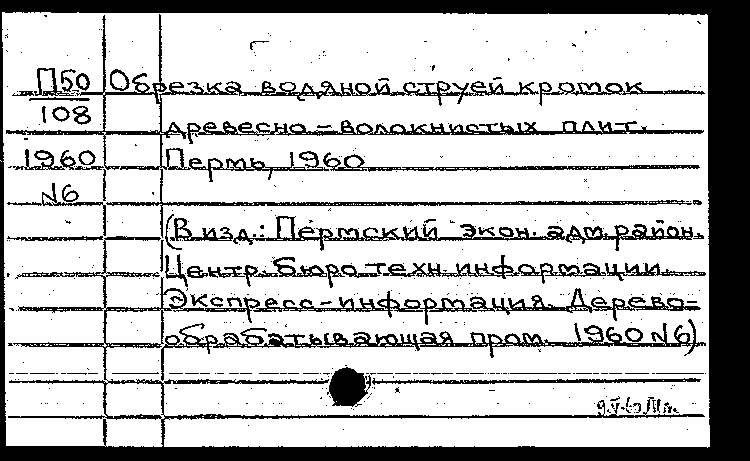 П50 Обрезка водяной струей кромок
108
древесно-волокнистых плит.
1960 Пермь, 1960
№6
(В изд.: Пермский экон. адм. район.
Центр. бюро техн. информации.
Экспресс-информация. Дерево=
обрабатывающая пром. 1960 №6)